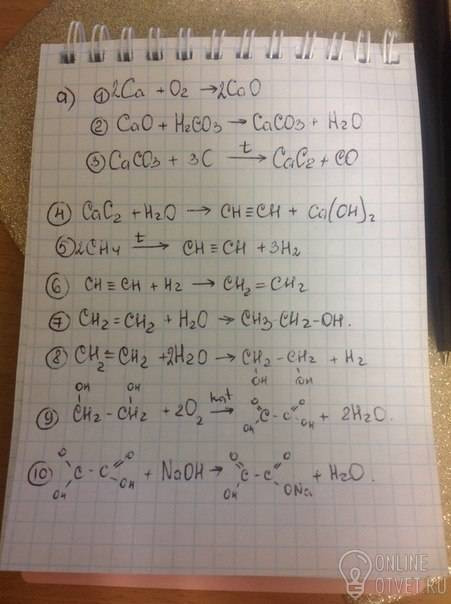 а) ① 2Ca + O2 → 2CaO
② CaO + H2CO3 → CaCO3 + H2O
③ CaCO3 + 3C t→ CaC2 + CO
④ CaC2 + H2O → CH≡CH + Ca(OH)2
⑤ 2CH4 t→ CH≡CH + 3H2
⑥ CH≡CH + H2 → CH2=CH2
⑦ CH2=CH2 + H2O → CH3-CH2-OH.
⑧ CH2=CH2 + 2H2O → CH2-CH2 + H2
OH OH
OH OH kat
⑨ CH2-CH2 + 2O2 → C-C + 2H2O.
O O
OH OH
O O O O
⑩ C-C + NaOH → C-C + H2O.
OH OH OH ONa
ONLINE
OTVET.RU